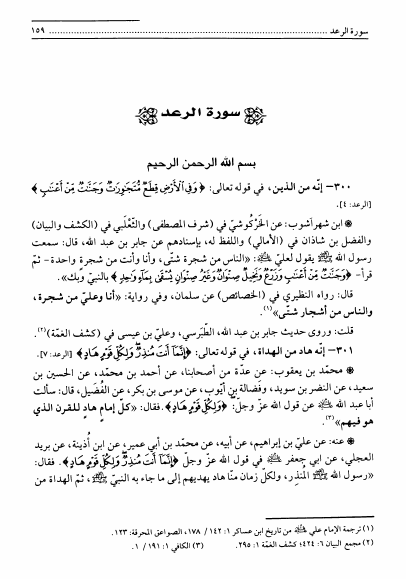 سورة الرعد ........................................ ١٥٩
سورة الرعد
بسم الله الرحمن الرحيم
٣٠٠- إنّه من الذين، في قوله تعالى: ﴿وَفِي الْأَرْضِ قِطَعٌ مُّتَجَاوِرَاتٌ وَجَنَّاتٌ مِّنْ أَعْنَابٍ﴾
[الرعد: ٤].
ابن شهرآشوب: عن الخَرْكُوشيّ في (شرف المصطفى) والثّعْلَبي في (الكشف والبيان)
والفضل بن شاذان في (الأمالي) واللفظ له، بإسنادهم عن جابر بن عبد الله، قال: سمعت
رسول الله ﷺ يقول لعليّ: «الناس من شجرة شتّى، وأنا وأنت من شجرة واحدة- ثمّ
قرأ- ﴿وَجَنَّاتٌ مِّنْ أَعْنَابٍ وَزَرْعٌ وَنَخِيلٌ صِنْوَانٌ وَغَيْرُ صِنْوَانٍ يُسْقَىٰ بِمَاءٍ وَاحِدٍ﴾ بالنبيّ وبك».
قال: رواه النطنزي في (الخصائص) عن سلمان، وفي رواية: «أنا وعليّ من شجرة،
والناس من أشجار شتّى»(١).
قلت: وروى حديث جابر بن عبد الله، الطَّبَرسي، وعليّ بن عيسى في (كشف الغمّة)(٢).
٣٠١- إنّه هاد من الهداة، في قوله تعالى: ﴿إِنَّمَا أَنتَ مُنذِرٌ وَلِكُلِّ قَوْمٍ هَادٍ﴾ [الرعد: ٧].
محمّد بن يعقوب: عن عدّة من أصحابنا، عن أحمد بن محمّد، عن الحسين بن
سعيد، عن النضر بن سويد، وفَضَالة بن أيّوب، عن موسى بن بكر، عن الفُضَيل، قال: سألت
أبا عبد الله عن قول الله عزّ وجلّ: ﴿وَلِكُلِّ قَوْمٍ هَادٍ﴾. فقال: «كلّ إمامٍ هادٍ للقرن الذي
هو فيهم»(٣).
عنه: عن عليّ بن إبراهيم، عن أبيه، عن محمّد بن أبي عمير، عن ابن أُذينة، عن بريد
العجلي، عن أبي جعفر في قول الله عزّ وجلّ ﴿إِنَّمَا أَنتَ مُنذِرٌ وَلِكُلِّ قَوْمٍ هَادٍ﴾. فقال:
«رسول الله ﷺ المُنذِر، ولكلّ زمان منّا هاد يهديهم إلى ما جاء به النبي ﷺ، ثمّ الهداة من
(١) ترجمة الإمام علي من تاريخ ابن عساكر ١: ١٤٢ / ١٧٨، الصواعق المحرقة: ١٢٣.
(٢) مجمع البيان ٦: ٤٢٤؛ كشف الغمّة ١: ٢٩٥. (٣) الكافي ١: ١٩١ / ١.